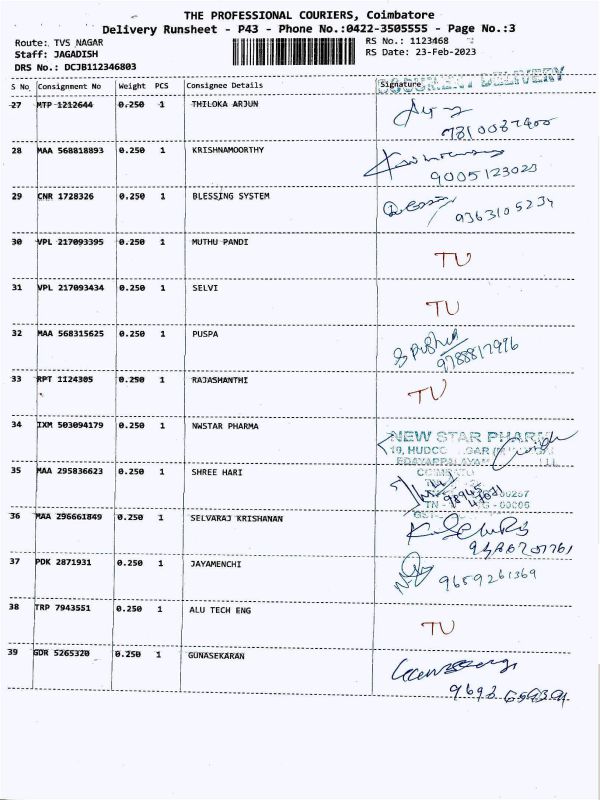 THE PROFESSIONAL COURIERS, Coimbatore
Delivery Runsheet - P43 - Phone No.:0422-3505555 - Page No.:3
Route: TVS NAGAR RS No.: 1123468
Staff: JAGADISH RS Date: 23-Feb-2023
DRS No.: DCJB112346803
DOCUMENT DELIVERY
S No Consignment No Weight PCS Consignee Details Signature
27 MTP 1212644 0.250 1 THILOKA ARJUN
7810087400
28 MAA 568818893 0.250 1 KRISHNAMOORTHY
9005123023
29 CNR 1728326 0.250 1 BLESSING SYSTEM
9363105234
30 VPL 217093395 0.250 1 MUTHU PANDI
TU
31 VPL 217093434 0.250 1 SELVI
TU
32 MAA 568315625 0.250 1 PUSPA
9788817996
33 RPT 1124305 0.250 1 RAJASHANTHI
TU
34 IXM 503094179 0.250 1 NWSTAR PHARMA
NEW STAR PHARM
19, HUDCO
35 MAA 295836623 0.250 1 SHREE HARI
36 MAA 296661849 0.250 1 SELVARAJ KRISHANAN
37 PDK 2871931 0.250 1 JAYAMENCHI
9659261369
38 TRP 7943551 0.250 1 ALU TECH ENG
TU
39 GDR 5265320 0.250 1 GUNASEKARAN